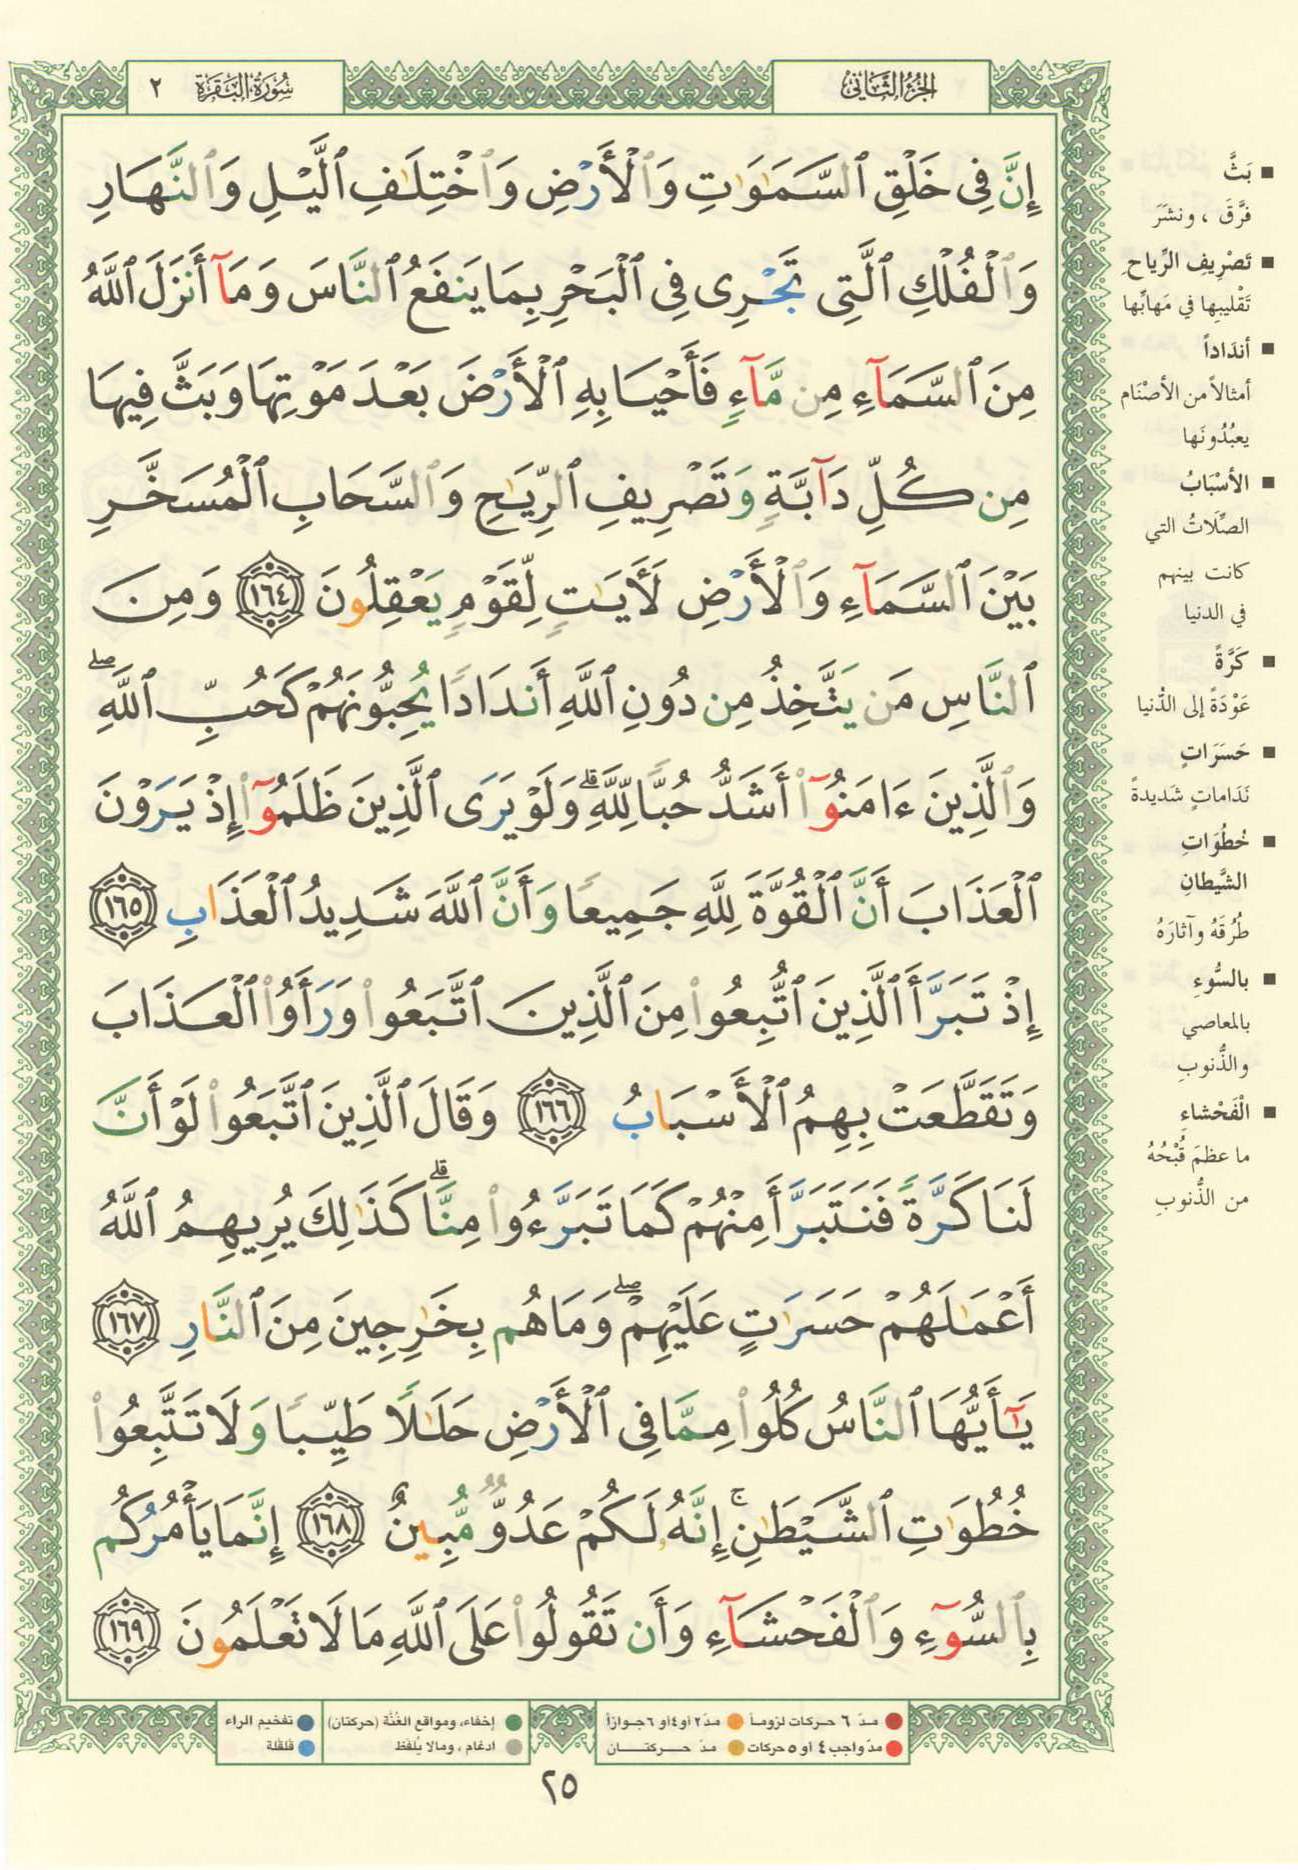 الجزء الثاني
سورة البقرة ٢
إِنَّ فِى خَلْقِ ٱلسَّمَـٰوَٰتِ وَٱلْأَرْضِ وَٱخْتِلَـٰفِ ٱلَّيْلِ وَٱلنَّهَارِ
وَٱلْفُلْكِ ٱلَّتِى تَجْرِى فِى ٱلْبَحْرِ بِمَا يَنفَعُ ٱلنَّاسَ وَمَآ أَنزَلَ ٱللَّهُ
مِنَ ٱلسَّمَآءِ مِن مَّآءٍ فَأَحْيَا بِهِ ٱلْأَرْضَ بَعْدَ مَوْتِهَا وَبَثَّ فِيهَا
مِن كُلِّ دَآبَّةٍ وَتَصْرِيفِ ٱلرِّيَـٰحِ وَٱلسَّحَابِ ٱلْمُسَخَّرِ
بَيْنَ ٱلسَّمَآءِ وَٱلْأَرْضِ لَـَٔايَـٰتٍ لِّقَوْمٍ يَعْقِلُونَ ١٦٤ وَمِنَ
ٱلنَّاسِ مَن يَتَّخِذُ مِن دُونِ ٱللَّهِ أَندَادًا يُحِبُّونَهُمْ كَحُبِّ ٱللَّهِ ۖ
وَٱلَّذِينَ ءَامَنُوٓا۟ أَشَدُّ حُبًّا لِّلَّهِ ۗ وَلَوْ يَرَى ٱلَّذِينَ ظَلَمُوٓا۟ إِذْ يَرَوْنَ
ٱلْعَذَابَ أَنَّ ٱلْقُوَّةَ لِلَّهِ جَمِيعًا وَأَنَّ ٱللَّهَ شَدِيدُ ٱلْعَذَابِ ١٦٥
إِذْ تَبَرَّأَ ٱلَّذِينَ ٱتُّبِعُوا۟ مِنَ ٱلَّذِينَ ٱتَّبَعُوا۟ وَرَأَوُا۟ ٱلْعَذَابَ
وَتَقَطَّعَتْ بِهِمُ ٱلْأَسْبَابُ ١٦٦ وَقَالَ ٱلَّذِينَ ٱتَّبَعُوا۟ لَوْ أَنَّ
لَنَا كَرَّةً فَنَتَبَرَّأَ مِنْهُمْ كَمَا تَبَرَّءُوا۟ مِنَّا ۗ كَذَٰلِكَ يُرِيهِمُ ٱللَّهُ
أَعْمَـٰلَهُمْ حَسَرَٰتٍ عَلَيْهِمْ ۖ وَمَا هُم بِخَـٰرِجِينَ مِنَ ٱلنَّارِ ١٦٧
يَـٰٓأَيُّهَا ٱلنَّاسُ كُلُوا۟ مِمَّا فِى ٱلْأَرْضِ حَلَـٰلًا طَيِّبًا وَلَا تَتَّبِعُوا۟
خُطُوَٰتِ ٱلشَّيْطَـٰنِ ۚ إِنَّهُۥ لَكُمْ عَدُوٌّ مُّبِينٌ ١٦٨ إِنَّمَا يَأْمُرُكُم
بِٱلسُّوٓءِ وَٱلْفَحْشَآءِ وَأَن تَقُولُوا۟ عَلَى ٱللَّهِ مَا لَا تَعْلَمُونَ ١٦٩
بَثَّ
فرَّقَ ، ونشَرَ
تَصْرِيفِ الرِّياحِ
تَقْلِيبِها في مَهابِّها
أندَاداً
أمثالاً من الأصْنَام
يعبُدُونَها
الأسْبَابُ
الصِّلَاتُ التي
كانت بينهم
في الدنيا
كَرَّةً
عَوْدَةً إلى الدُّنيا
حَسَرَاتٍ
نَدَاماتٍ شَديدةً
خُطُوَاتِ
الشَّيطانِ
طُرُقَهُ وآثارَهُ
بالسُّوءِ
بالمعاصي
والذُّنوبِ
الْفَحْشاءِ
ما عظمَ قُبْحُهُ
من الذُّنوبِ
مدّ ٦ حركات لزوماً
مدّ٢ أو٤أو ٦جوازاً
مدّ واجب ٤ أو ٥ حركات
مدّ حركتان
إخفاء، ومواقع الغُنَّة (حركتان)
ادغام ، ومالا يُلفَظ
تفخيم الراء
قلقلة
٢٥